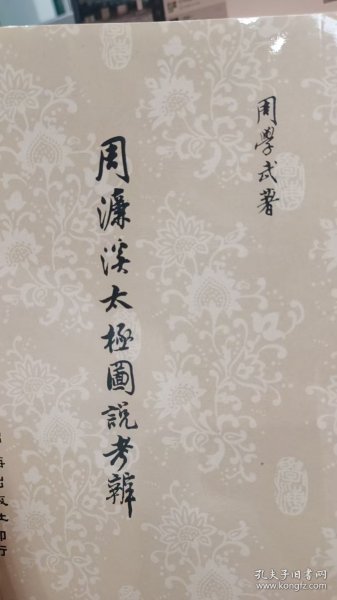 周學武著
周濂溪太極圖說考辨
海出版社印行
孔夫子旧书网
www.kongfz.com